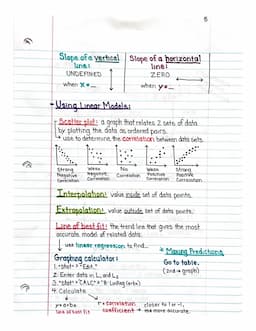 Slope of a vertical line:
UNDEFINED
when x = _
Slope of a horizontal line:
ZERO
when y = _
Using Linear Models:
Scatter plot: a graph that relates 2 sets of data
by plotting the data as ordered pairs.
* use to determine the correlation between data sets
Strong Negative Correlation
Weak Negative Correlation
No Correlation
Weak Positive Correlation
Strong Positive Correlation
Interpolation: value inside set of data points.
Extrapolation: value outside set of data points.
Line of best fit: the trend line that gives the most
accurate model of related data.
use linear regression to find...
Graphing calculator:
1. "stat" → "Edit"
2. Enter data in L₁ and L₂
3. "stat" → "CALC" → "8: LinReg (a+bx)"
4. Calculate
y = a+bx
line of best fit
r = correlation coefficient
closer to 1 or -1,
more accurate.
* Making Predictions
Go to table.
(2nd → graph)